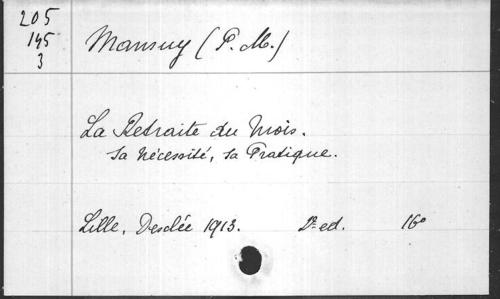 205
145
3
Mansuy (P. M.)
La Retraite du Mois.
Sa nécessité, sa Pratique.
Lille, Desclée 1913. 2e ed. 16°